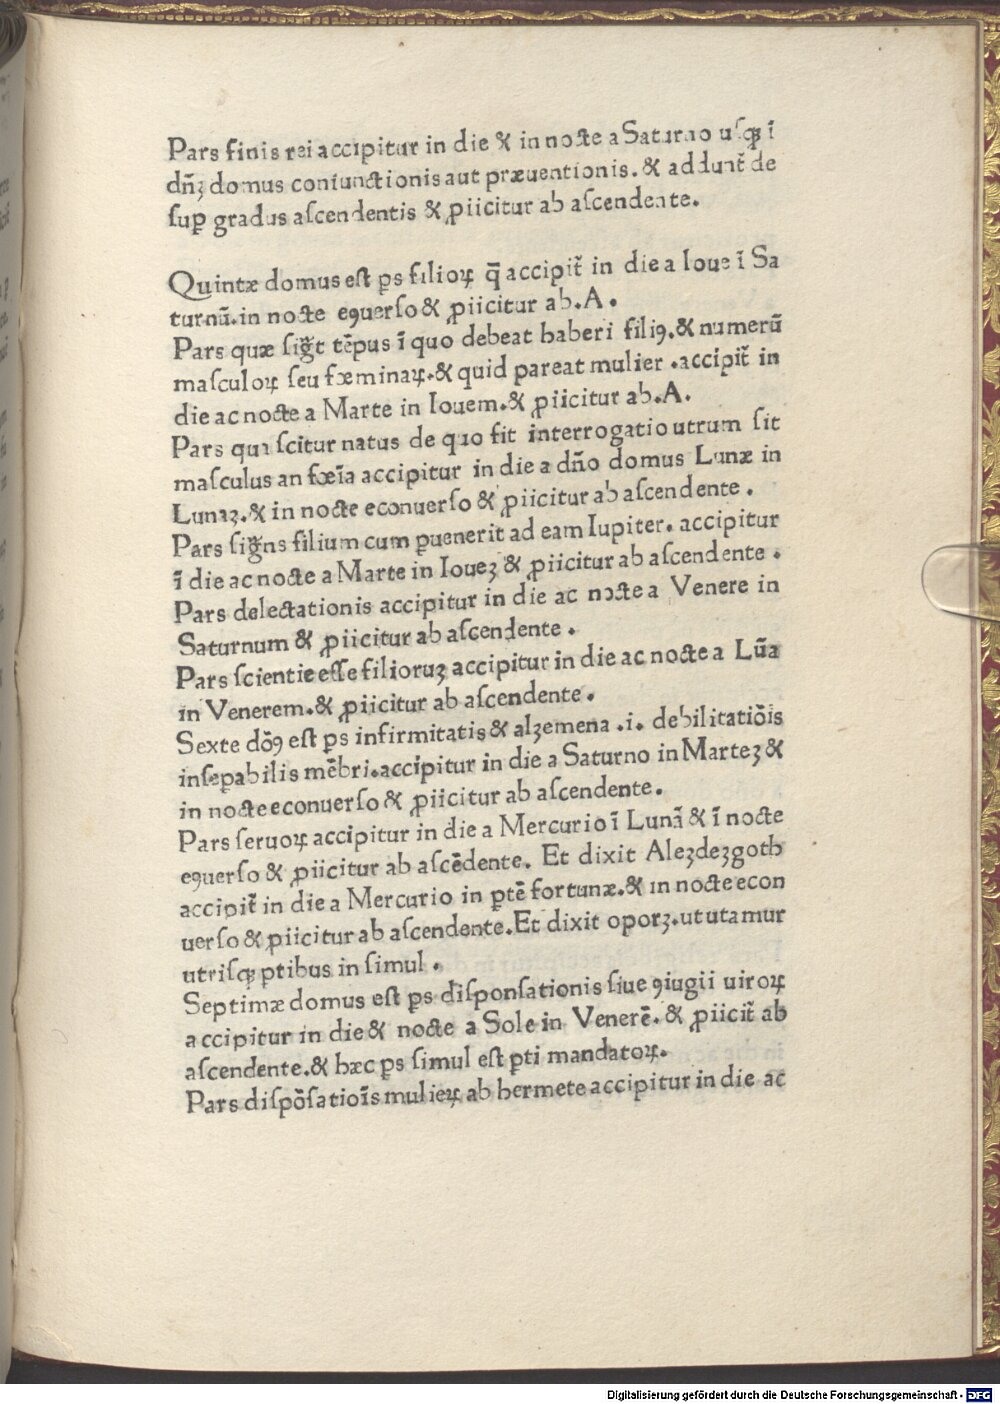 Pars finis rei accipitur in die & in nocte a Saturno uſqꝫ ī
dñꝫ domus coniunctionis aut præuentionis. & addunt̃ de
ſuꝑ gradus aſcendentis & ꝓiicitur ab aſcendente.
Quintæ domus eſt ꝑs filioꝝ q̄ accipit̃ in die a Ioue ī Sa
turnū. in nocte eꝯuerſo & ꝓiicitur ab. A.
Pars quæ ſigt̃ tēpus ī quo debeat haberi filiꝰ. & numerū
maſculoꝝ ſeu fœminaꝝ. & quid pareat mulier . accipit̃ in
die ac nocte a Marte in Iouem. & ꝓiicitur ab. A.
Pars qua ſcitur natus de quo fit interrogatio utrum ſit
maſculus an fœīa accipitur in die a dño domus Lunæ in
Lunaꝫ. & in nocte econuerſo & ꝓiicitur ab aſcendente .
Pars ſigñs filium cum ꝑuenerit ad eam Iupiter. accipitur
ī die ac nocte a Marte in Ioueꝫ & ꝓiicitur ab aſcendente .
Pars delectationis accipitur in die ac nocte a Venere in
Saturnum & ꝓiicitur ab aſcendente .
Pars ſcientie eſſe filioruꝫ accipitur in die ac nocte a Lūa
in Venerem. & ꝓiicitur ab aſcendente .
Sexte doꝰ̄ eſt ꝑs infirmitatis & alꝫemena .i. debilitatiōis
inſeꝑabilis mēbri. accipitur in die a Saturno in Marteꝫ &
in nocte econuerſo & ꝓiicitur ab aſcendente.
Pars ſeruoꝝ accipitur in die a Mercurio ī Lunā & ī nocte
eꝯuerſo & ꝓiicitur ab aſcēdente. Et dixit Aleꝫdeꝫgoth
accipit̃ in die a Mercurio in ꝑtē fortunæ. & in nocte econ
uerſo & ꝓiicitur ab aſcendente. Et dixit oporꝫ. ut utamur
utriſqꝫ ꝑtibus in ſimul .
Septimæ domus eſt ꝑs diſponſationis ſiue ꝯiugii uiroꝝ
accipitur in die & nocte a Sole in Venerē. & ꝓiicit̃ ab
aſcendente. & hæc ꝑs ſimul eſt ꝑti mandatoꝝ.
Pars diſpōſatioīs mulieꝝ ab hermete accipitur in die ac
Digitalisierung gefördert durch die Deutsche Forschungsgemeinschaft - DFG